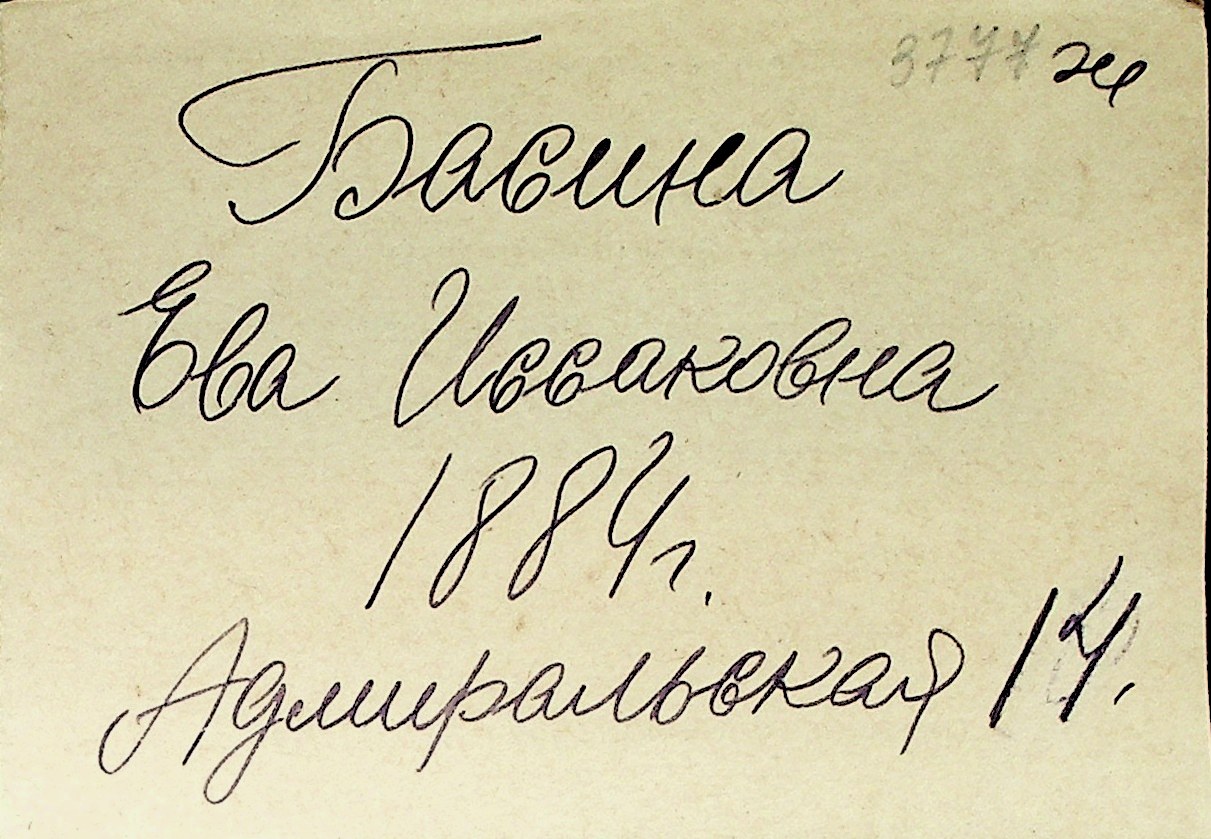 3777 ж
Басина
Ева Иссаковна
1884г.
Адмиральская 14.